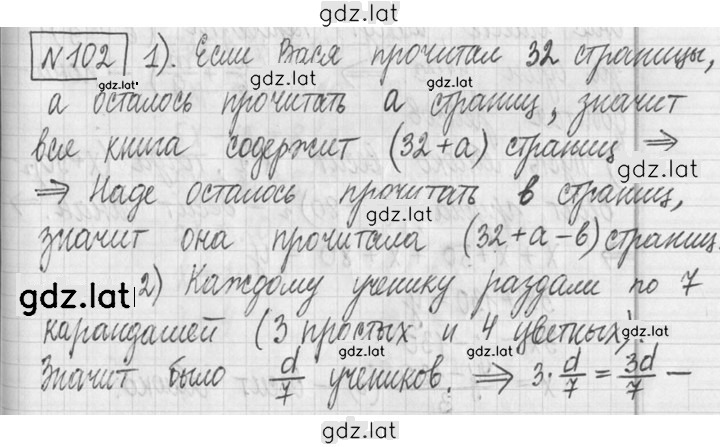 gdz.lat
№102 1). Если Вася прочитал 32 страницы,
gdz.lat
а осталось прочитать а страниц, значит
gdz.lat
вся книга содержит (32+а) страниц ⇒
gdz.lat
⇒ Наде осталось прочитать в страниц,
gdz.lat
значит она прочитала (32+а-в) страниц.
gdz.lat
2) Каждому ученику раздали по 7
карандашей (3 простых и 4 цветных).
gdz.lat
gdz.lat
Значит было d/7 учеников. ⇒ 3·d/7 = 3d/7 —
gdz.lat
gdz.lat
gdz.lat